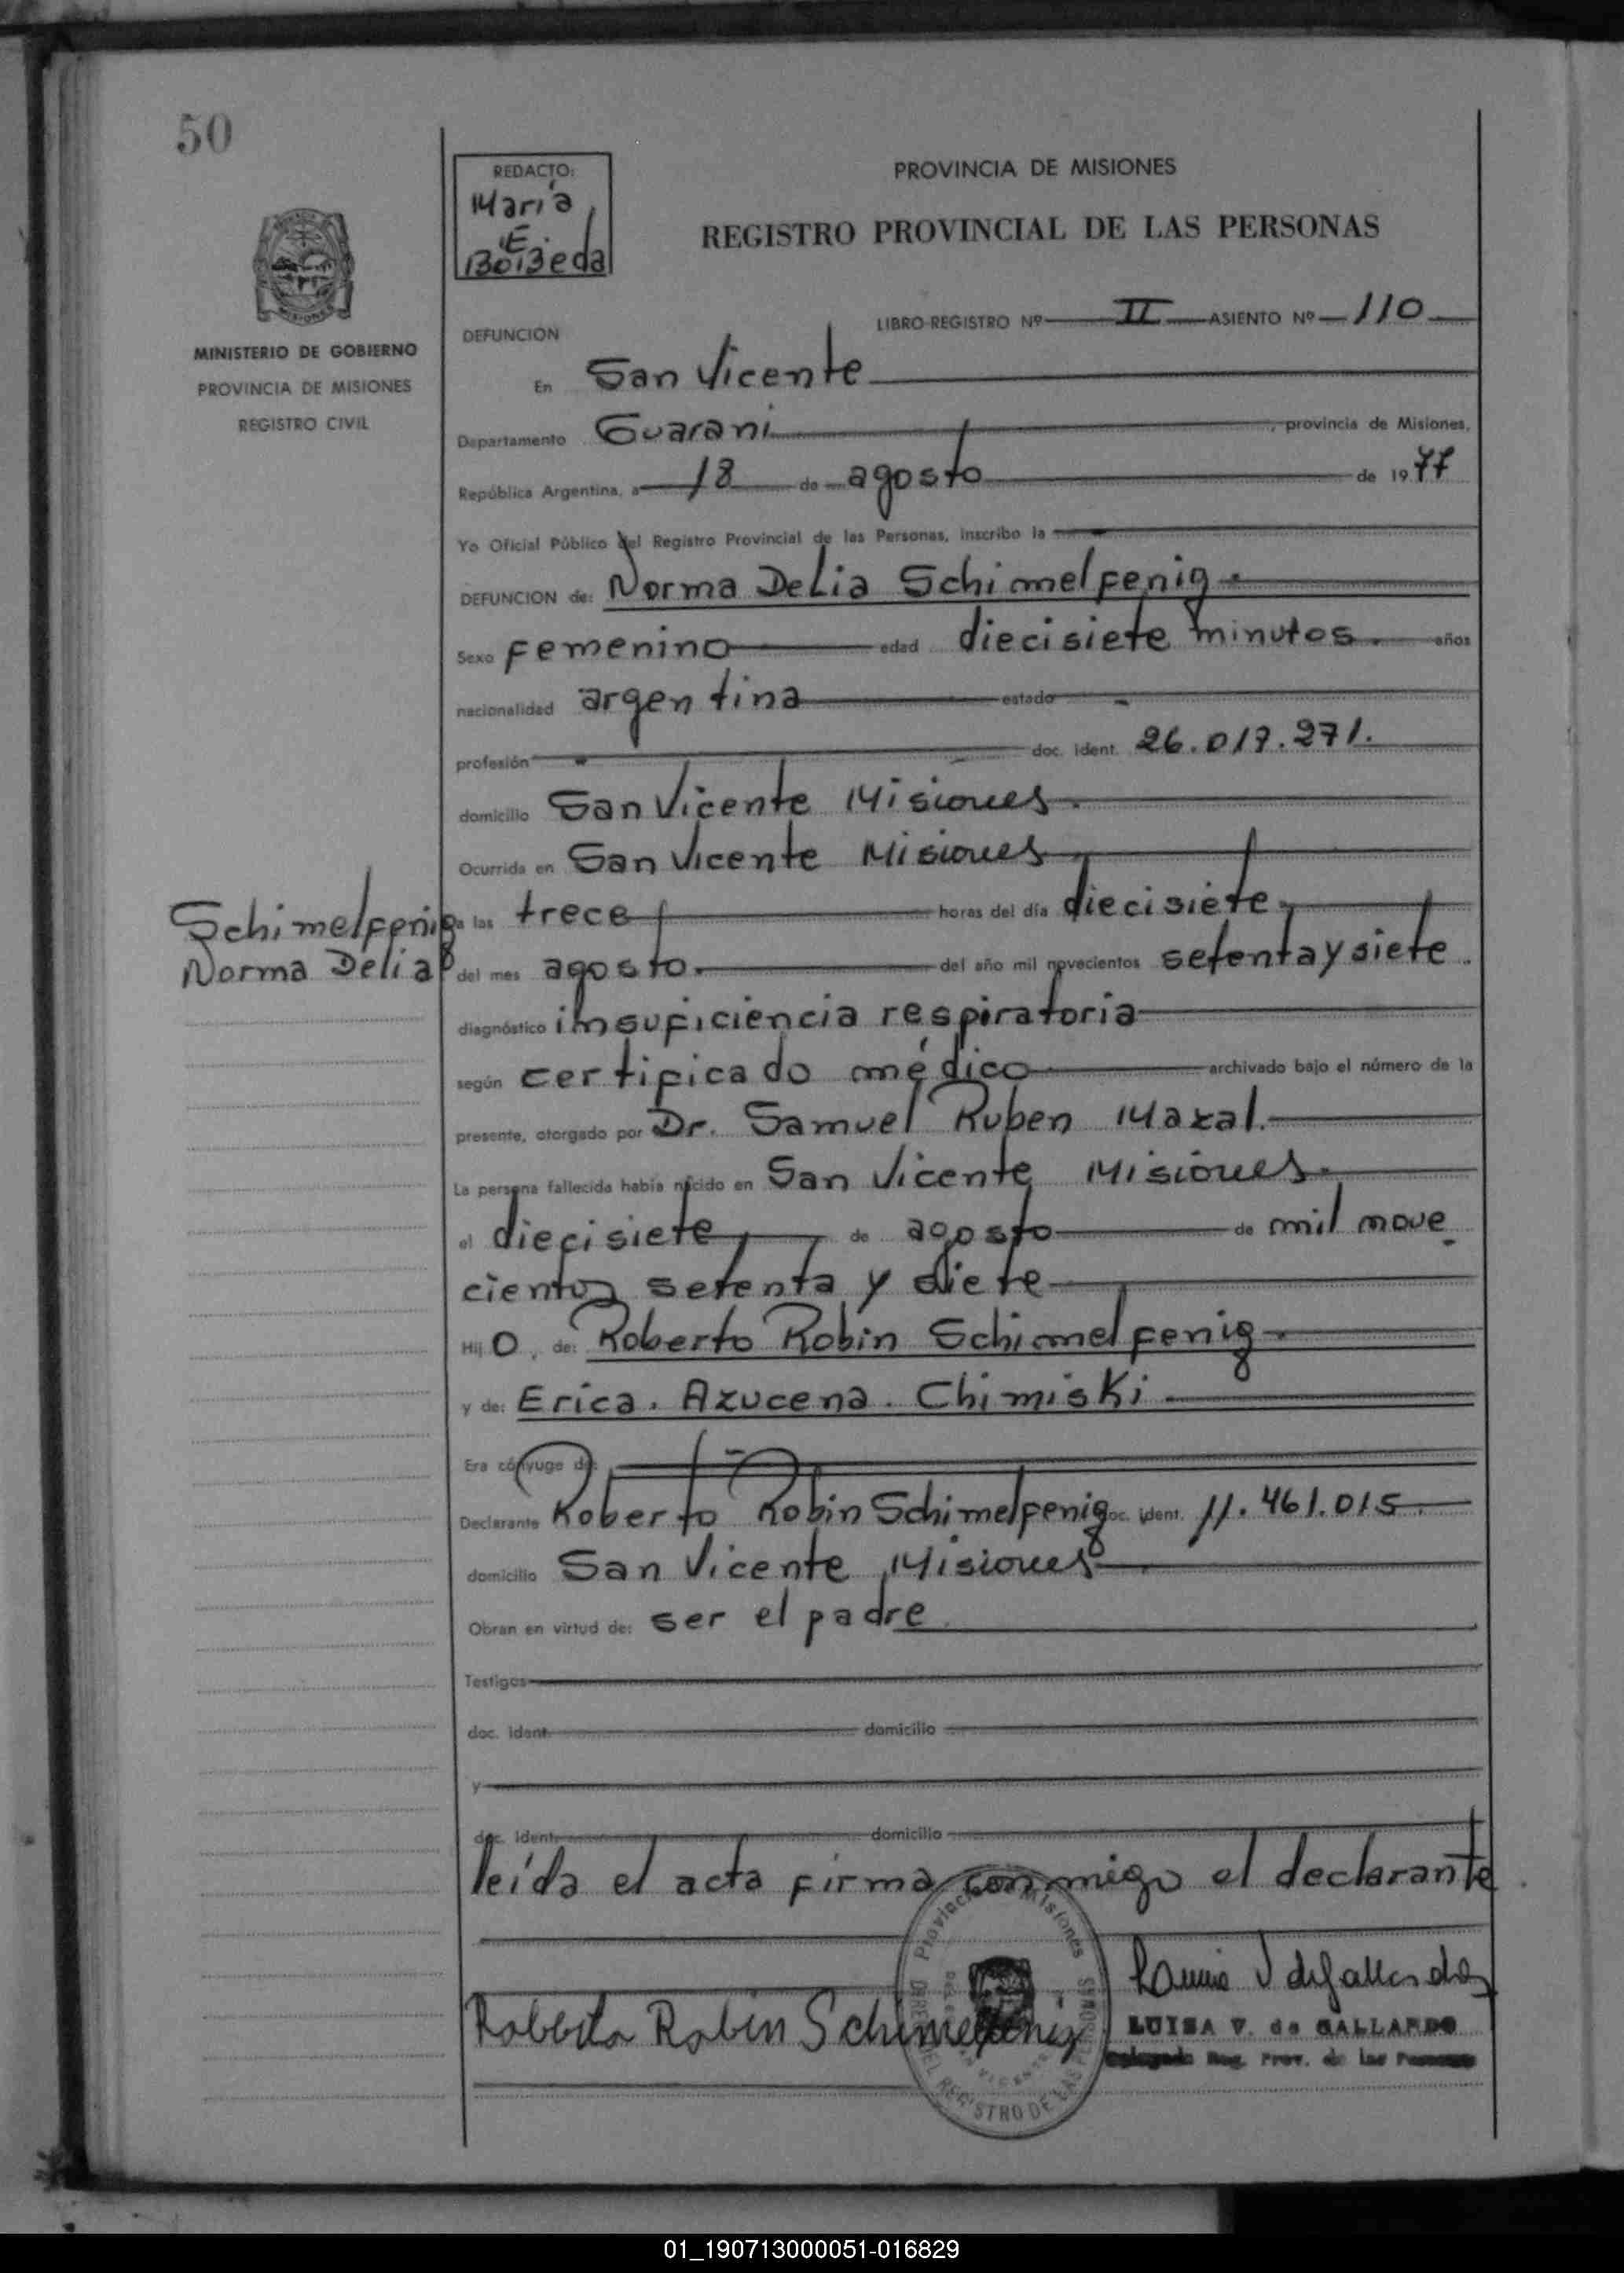 50
REDACTO:
Maria
E.
Boiseda
PROVINCIA DE MISIONES
REGISTRO PROVINCIAL DE LAS PERSONAS
MINISTERIO DE GOBIERNO
PROVINCIA DE MISIONES
REGISTRO CIVIL
LIBRO-REGISTRO Nº II ASIENTO Nº 110
DEFUNCION
En San Vicente
Departamento Guarani, provincia de Misiones,
República Argentina, a 18 de agosto de 1977
Yo Oficial Público del Registro Provincial de las Personas, inscribo la
DEFUNCION de: Norma Delia Schimelfenig
Sexo femenino edad diecisiete minutos. años
nacionalidad argentina estado -
profesión - doc. ident. 26.017.271.
domicilio San Vicente Misiones
Ocurrida en San Vicente Misiones
Schimelfenig
Norma Delia
a las trece horas del día diecisiete
del mes agosto. del año mil novecientos setenta y siete.
diagnóstico insuficiencia respiratoria
según certificado médico archivado bajo el número de la
presente, otorgado por Dr. Samuel Ruben Maxal.
La persona fallecida había nacido en San Vicente Misiones.
el diecisiete de agosto de mil nove
cientos setenta y siete
Hij O, de: Roberto Robin Schimelfenig
y de: Erica. Azucena. Chimiski
Era cónyuge de: -
Declarante Roberto Robin Schimelfenig doc. ident. 11.461.015.
domicilio San Vicente Misiones
Obran en virtud de: ser el padre.
Testigos
doc. ident. domicilio
y
doc. ident. domicilio
leída el acta firma conmigo el declarante.
Provincia de Misiones
REGISTRO DE LAS PERSONAS
SAN VICENTE
Roberto Robin Schimelfenig
LUISA V. de GALLARDO
Delegada Reg. Prov. de las Personas
01_190713000051-016829